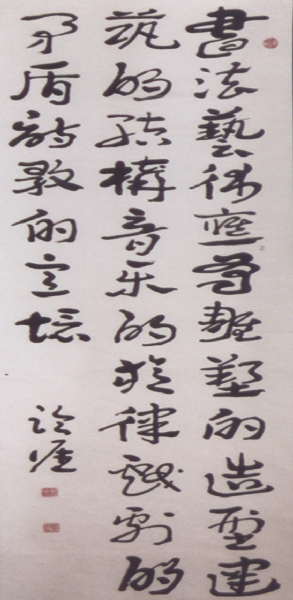 書法藝術應雕塑的造型建
筑的結構音乐的旋律戲劇的
矛盾詩歌的意境